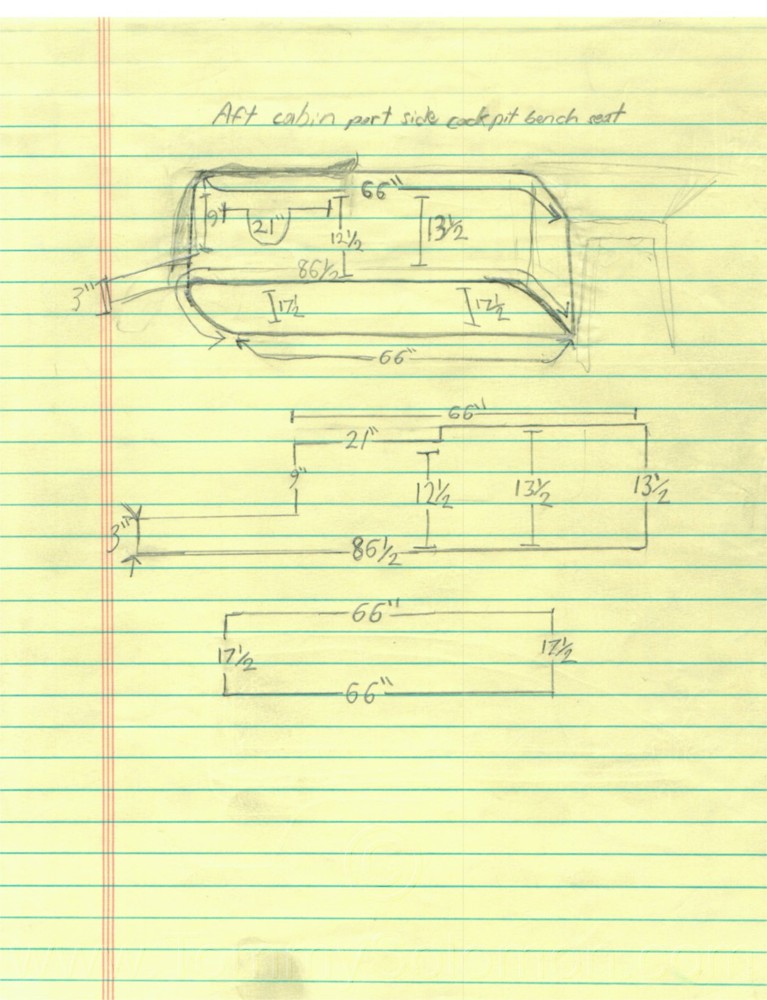 Aft cabin port side cockpit bench seat
66"
9"
21"
12 1/2
13 1/2
86 1/2
3"
17 1/2
17 1/2
66"
66"
21"
9"
12 1/2
13 1/2
13 1/2
3"
86 1/2
66"
17 1/2
17 1/2
66"